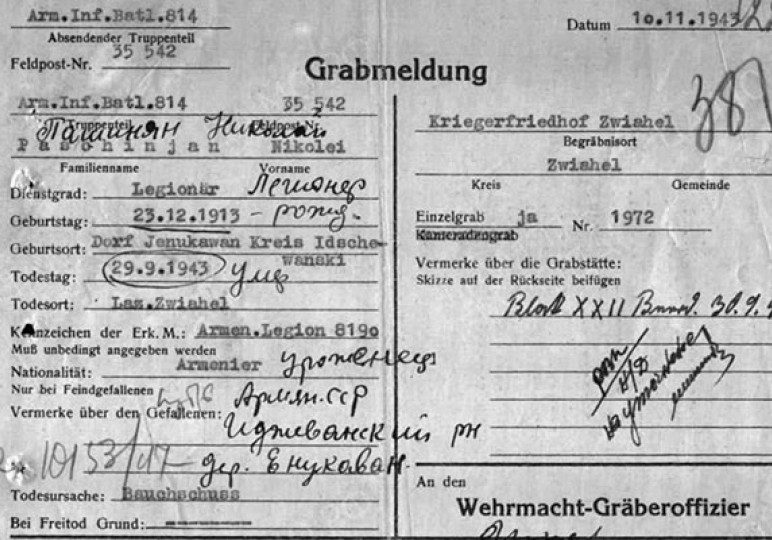 Arm.Inf.Batl.814
Absendender Truppenteil
Feldpost-Nr. 35 542
Datum 10.11.1943
Grabmeldung
Arm.Inf.Batl.814 35 542
Truppenteil Feldpost-Nr.
Пашинян Николай
Paschinjan Nikolei
Familienname Vorname
Dienstgrad: Legionär Легионер
Geburtstag: 23.12.1913 - рожд.
Geburtsort: Dorf Jenukawan Kreis Idsche-
wanski
Todestag: 29.9.1943 ум.
Todesort: Laz.Zwiahel
Kennzeichen der Erk. M.: Armen.Legion 8190
Muß unbedingt angegeben werden
Nationalität: Armenier уроженец
Nur bei Feindgefallenen
Армян.ССР
Vermerke über den Gefallenen:
Иджеванский рн
дер. Енукаван.
10153/
Todesursache: Bauchschuss
Bei Freitod Grund: ----------
387
Kriegerfriedhof Zwiahel
Begräbnisort
Zwiahel
Kreis Gemeinde
Einzelgrab ja Nr. 1972
Kameradengrab
Vermerke über die Grabstätte:
Skizze auf der Rückseite beifügen
Block XXII 30.9.
An den
Wehrmacht-Gräberoffizier